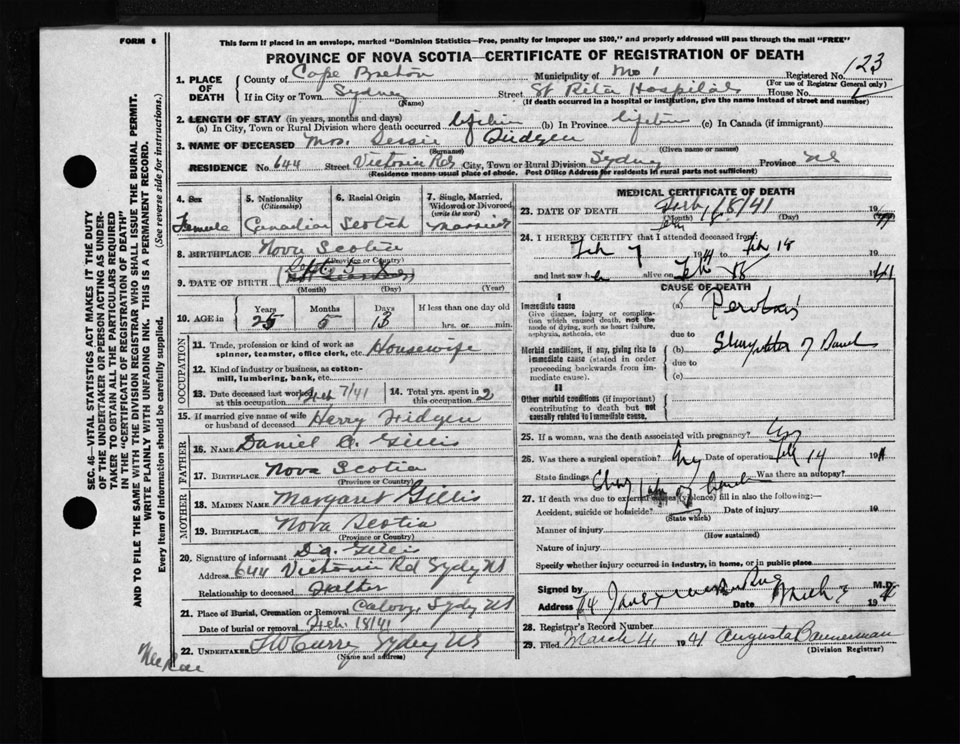 FORM 6
This form if placed in an envelope, marked "Dominion Statistics—Free, penalty for improper use $300," and properly addressed will pass through the mail "FREE"
PROVINCE OF NOVA SCOTIA—CERTIFICATE OF REGISTRATION OF DEATH
1. PLACE OF DEATH
County of Cape Breton Municipality of Registered No. 123
(For use of Registrar General only)
If in City or Town Sydney Street St Rita Hospital House No.
(Name)
(If death occurred in a hospital or institution, give the name instead of street and number)
2. LENGTH OF STAY (in years, months and days)
(a) In City, Town or Rural Division where death occurred (b) In Province lifetime (c) In Canada (if immigrant)
3. NAME OF DECEASED Mrs.
(Surname) (Given name or names)
RESIDENCE No. 644 Street Victoria Rd City, Town or Rural Division Sydney Province NS
(Residence means usual place of abode. Post Office Address for residents in rural parts not sufficient)
4. Sex Female
5. Nationality (Citizenship) Canadian
6. Racial Origin Scotch
7. Single, Married, Widowed or Divorced (write the word) Married
8. BIRTHPLACE Nova Scotia
(Province or Country)
9. DATE OF BIRTH Sept 5
(Month) (Day) (Year)
10. AGE in Years 25 Months 5 Days 13 If less than one day old hrs. or min.
OCCUPATION
11. Trade, profession or kind of work as spinner, teamster, office clerk, etc. Housewife
12. Kind of industry or business, as cotton-mill, lumbering, bank, etc.
13. Date deceased last worked at this occupation Feb 7/41
14. Total yrs. spent in this occupation 2
15. If married give name of wife or husband of deceased
FATHER
16. Name Daniel Gillis
17. Birthplace Nova Scotia
(Province or Country)
MOTHER
18. Maiden Name Margaret Gillis
19. Birthplace Nova Scotia
(Province or Country)
20. Signature of informant Gillis
Address 644 Victoria Rd Sydney NS
Relationship to deceased
21. Place of Burial, Cremation or Removal Sydney NS
Date of burial or removal Feb. 18/41
22. UNDERTAKER Curry Sydney NS
(Name and address)
MEDICAL CERTIFICATE OF DEATH
23. DATE OF DEATH 18/41 19
(Month) (Day)
24. I HEREBY CERTIFY that I attended deceased from
Feb 7 1941 to Feb 18
and last saw h alive on Feb 1941
CAUSE OF DEATH
1
Immediate cause
Give disease, injury or complication which caused death, not the mode of dying, such as heart failure, asphyxia, asthenia, etc
(a)
due to
Morbid conditions, if any, giving rise to immediate cause (stated in order proceeding backwards from immediate cause).
(b)
due to
(c)
Other morbid conditions (if important) contributing to death but not causally related to immediate cause.
25. If a woman, was the death associated with pregnancy?
26. Was there a surgical operation? Date of operation Feb 14 19
State findings Was there an autopsy?
27. If death was due to external causes (violence) fill in also the following:—
Accident, suicide or homicide? Date of injury 19
(State which)
Manner of injury
(How sustained)
Nature of injury
Specify whether injury occurred in industry, in home, or in public place
Signed by M.D.
Address Date 19
28. Registrar's Record Number
29. Filed March 4 1941 Augusta Bannerman
(Division Registrar)
SEC. 46—VITAL STATISTICS ACT MAKES IT THE DUTY
OF THE UNDERTAKER OR PERSON ACTING AS UNDERTAKER TO OBTAIN ALL THE PARTICULARS REQUIRED
IN THE "CERTIFICATE OF REGISTRATION OF DEATH"
AND TO FILE THE SAME WITH THE DIVISION REGISTRAR WHO SHALL ISSUE THE BURIAL PERMIT.
WRITE PLAINLY WITH UNFADING INK. THIS IS A PERMANENT RECORD.
Every item of information should be carefully supplied. (See reverse side for instructions.)